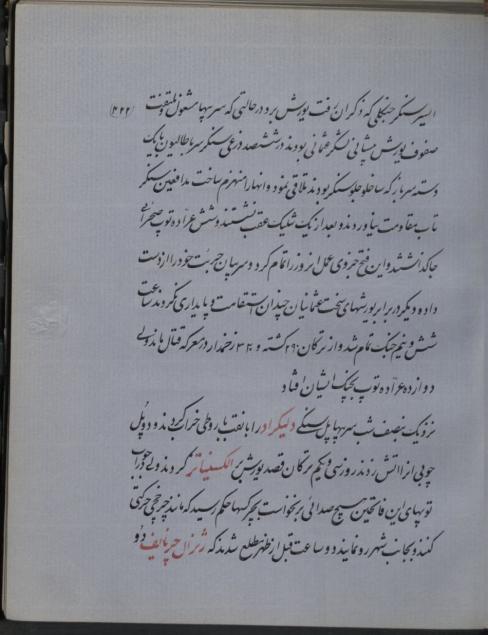 السیر سنکر جنکلی که ذکر ان رفت یورش برد در حالتی که سربها مشغول (۴۲۲)
صفوف یورش پیشانی لشکر عثمانی بودند در ششصد ذرعی سنکر سر باطالیون با یک
دسته سرباز که ساخلو جلو سنکر بودند تلاقی نمود و انها را منهزم ساخت مدافعین سنکر
تاب مقاومت نیاوردند و بعد از یک شلیک عقب نشستند و شش عراده توپ صحرائی
جا گذاشتند و این فتح جزوی عمل انروز را تمام کرد و سربیان جرئت خود را از دست
داده و دیگر در برابر یورشهای سخت عثمانیان چندان استقامت و پایداری نکردند ساعت
شش و نیم جنک تمام شد و از ترکان ۲۹۰ کشته و ۳۴۰ زخمدار در معرکه قتال ماند ولی
دوازده عراده توپ بچنک ایشان افتاد
نزدیک بنصف شب سربها پل سنکی دلیکراد را با نقب باروطی خراب کردند و دو پل
چوبی انرا اتش زدند روز سی و یکم ترکان قصد یورش بر الکسیناتز کردند ولی جواب
توپهای این فاتحین هیچ صدائی برنخواست بچرکسها حکم رسید که مانند چرخچی حرکتی
کنند و بجانب شهر رو نمایند دو ساعت قبل از ظهر مطلع شدند که ژنرال چرنایف دو